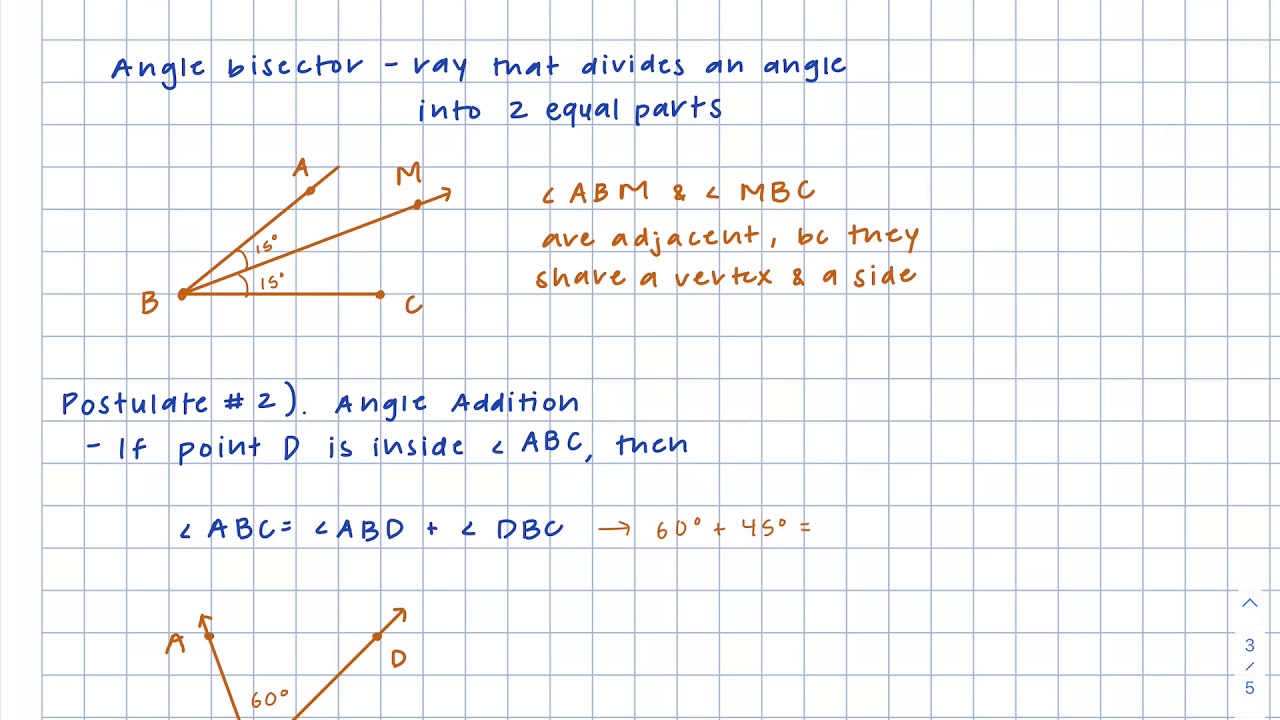 Angle bisector - ray that divides an angle
into 2 equal parts
A
M
∠ ABM & ∠ MBC
are adjacent, bc they
share a vertex & a side
15°
15°
B
C
Postulate # 2). Angle Addition
- If point D is inside ∠ ABC, then
∠ ABC = ∠ABD + ∠ DBC → 60° + 45° =
A
D
60°
3
/
5